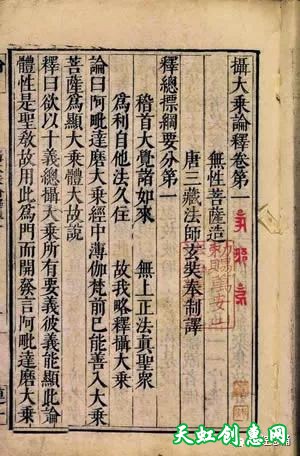 攝大乘論釋卷第一
無性菩薩造
唐三藏法師玄奘奉制譯
釋總標綱要分第一
稽首大覺諸如來　無上正法真聖衆
為利自他法久住　故我略釋攝大乘
論曰阿毗達磨大乘經中薄伽梵前已能善入大乘
菩薩為顯大乘體大故說
釋曰欲以十義總攝大乘所有要義彼義能顯此論
體性是聖教故用此為門而開發言阿毗達磨大乘
天虹创意网